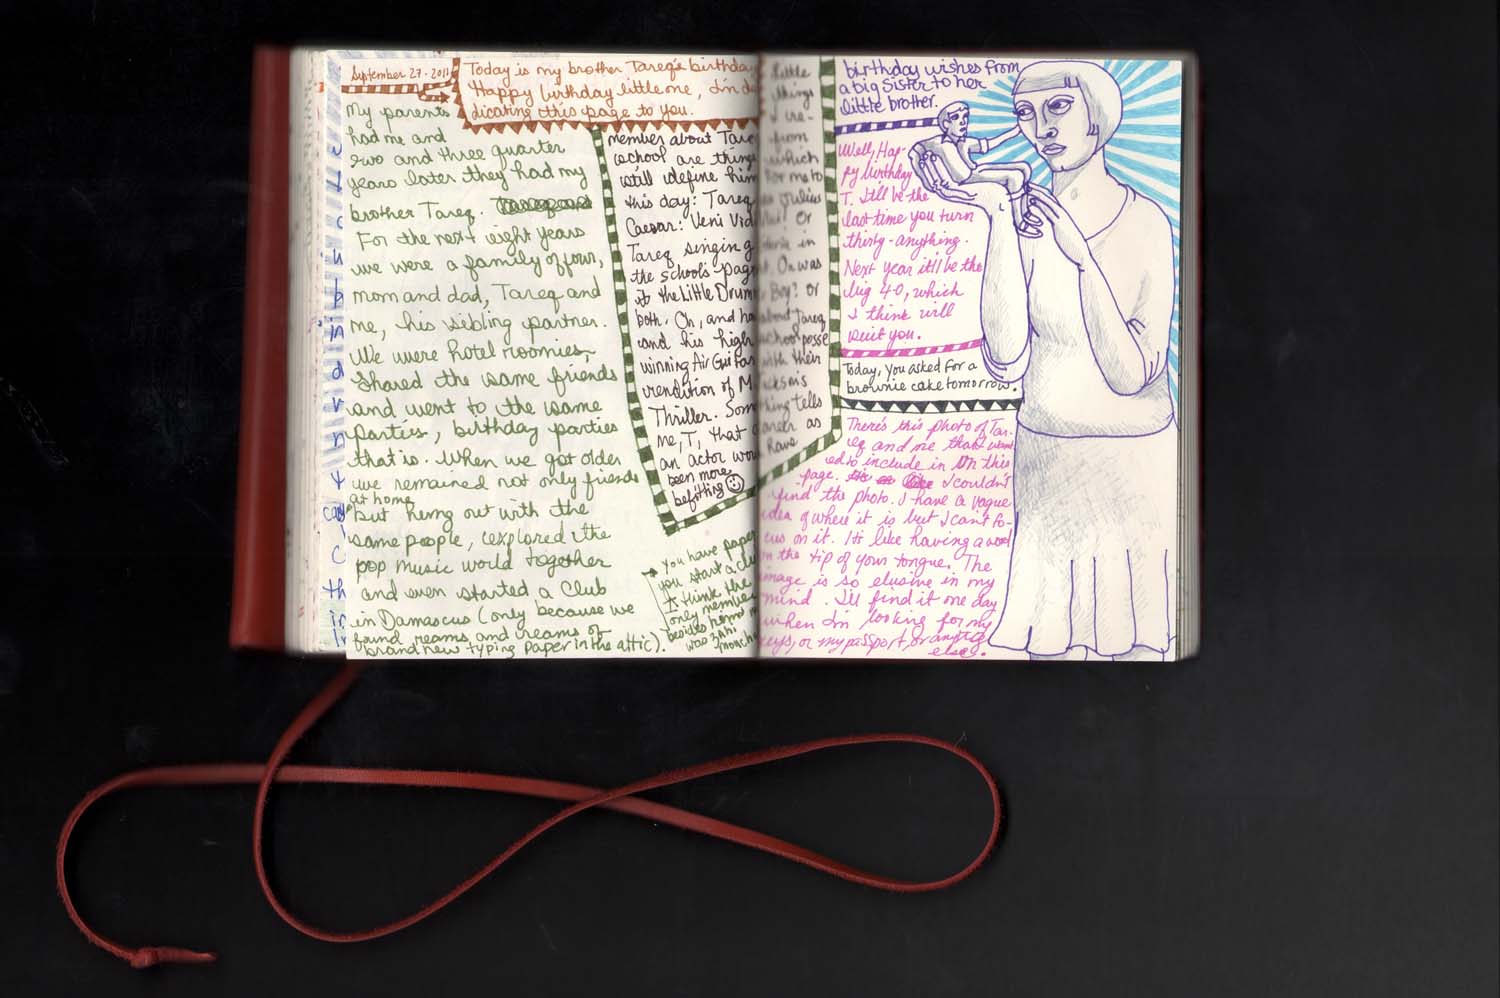 September 27 · 2011
Today is my brother Tareq's birthday
Happy birthday little one, I'm de
dicating this page to you.
My parents
had me and
two and three quarter
years later they had my
brother Tareq.
For the next eight years
we were a family of four,
mom and dad, Tareq and
me, his sibling partner.
We were hotel roomies,
shared the same friends
and went to the same
parties, birthday parties
that is. When we got older
we remained not only friends
at home
but hung out with the
same people, explored the
pop music world together
and even started a Club
in Damascus (only because we
found reams and reams of
brand new typing paper in the attic).
you have paper
you start a clu
I think the
only member
besides
was
little
things
I re-
member about Tare
from
school are thing
which
still define him
For me to
this day: Tareq
as Julius
Caesar: Veni Vidi
Vici! Or
Tareq singing
the school's page
. Or was
it the Little Drumm
Boy? or
both. Oh, and ho
about Tareq
and his high
school posse
winning Air Guitar
with their
rendition of M.
Jackson's
Thriller. Som
thing tells
me, T, that a
career as
an actor wou
have
been more
befitting
birthday wishes from
a big sister to her
little brother.
Well, Hap-
py birthday
T. It'll be the
last time you turn
thirty-anything.
Next year it'll be the
big 4-0, which
I think will
suit you.
Today, you asked for a
brownie cake tomorrow.
There's this photo of Tar-
eq and me that I want
ed to include in on this
page. I couldn't
find the photo. I have a vague
idea of where it is but I can't fo-
cus on it. It's like having a word
on the tip of your tongue. The
image is so elusive in my
mind. I'll find it one day
when I'm looking for my
keys, or my passport, or anything
else.